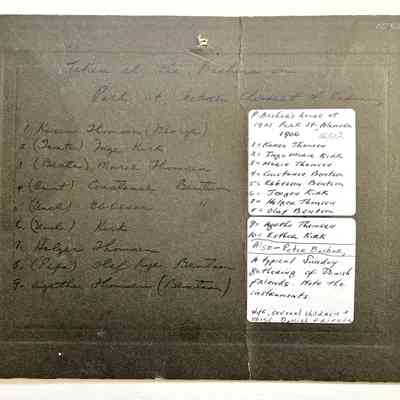 Taken at the Bechers on
Park St between
1, Karen Thomsen (George)
2 (Tante) Inge Kirk
3 (Beate) Marie Thomsen
4 (Aunt) Constance Bentson
(Uncl) Ebbesen "
6. (Uncl) Kirk
7. Holger Thomsen
8. (Papa) Olaf Bentson
9. Agathe Thomsen (Bentson)
P Becher's house at
1921 Park St, Alameda
1900
1 = Karen Thomsen
2 = Inge Marie Kirk
3 = Marie Thomsen
4 = Constance Bentson
5 = Ebbesen Bentson
6 = Jorgen Kirk
7 = Holger Thomsen
8 = Olaf Bentson
9 = Agathe Thomsen
10 = Esther Kirk
Also = Peter Becher,
A typical Sunday
gathering of Danish
friends. Note the
instruments.
several children &
Danish friends